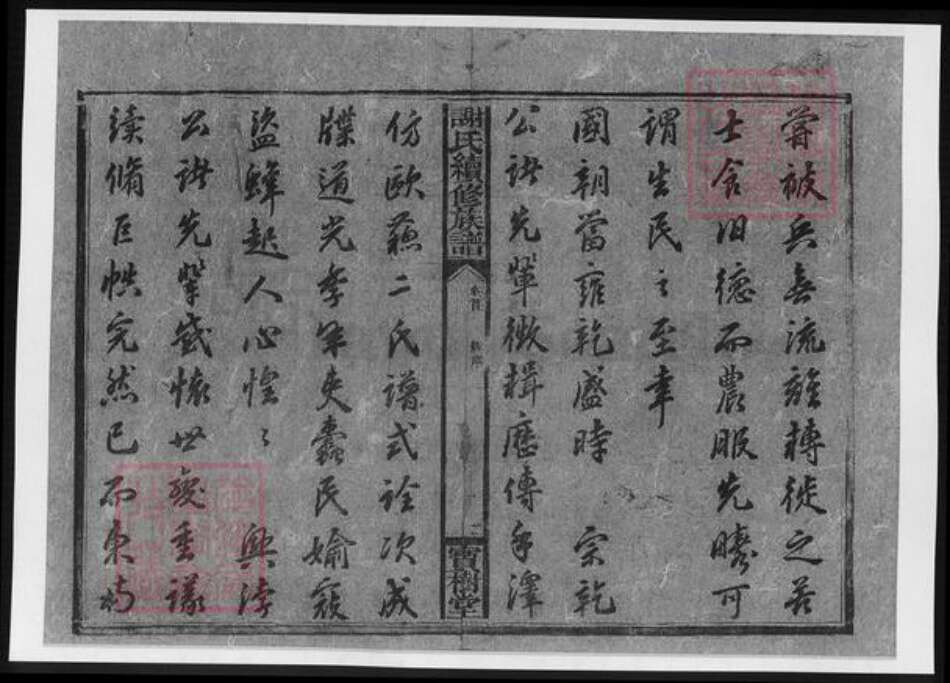 嘗被兵喜流離轉徙之苦
士食旧德而農服先疇可
謂生民之至幸
國朝當雍乾盛時 宗乾
公諱先輩徵揖歷傳手澤
謝氏續修族譜
卷首
二
寶樹堂
仿歐蘇二氏譜式詮次成
牒道光季年夷蠹民媮寇
盜蜂起人心惶〻 興
公諱先輩感懷世變重議
續脩巨帙完然已而東